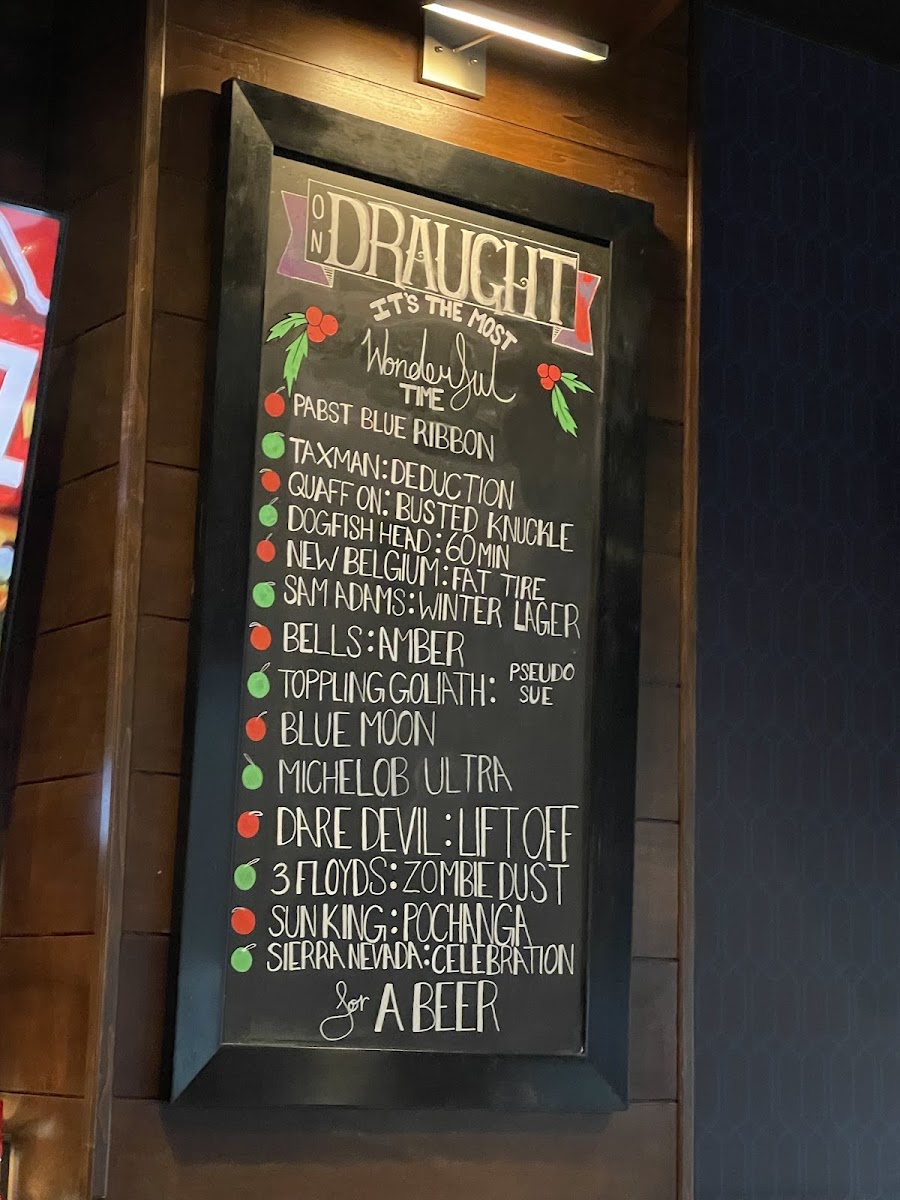 ON DRAUGHT
IT'S THE MOST
Wonderful
TIME
PABST BLUE RIBBON
TAXMAN: DEDUCTION
QUAFF ON: BUSTED KNUCKLE
DOGFISH HEAD: 60 MIN
NEW BELGIUM: FAT TIRE
SAM ADAMS: WINTER LAGER
BELLS: AMBER
TOPPLING GOLIATH: PSEUDO SUE
BLUE MOON
MICHELOB ULTRA
DARE DEVIL: LIFT OFF
3 FLOYDS: ZOMBIE DUST
SUN KING: POCHANGA
SIERRA NEVADA: CELEBRATION
for A BEER